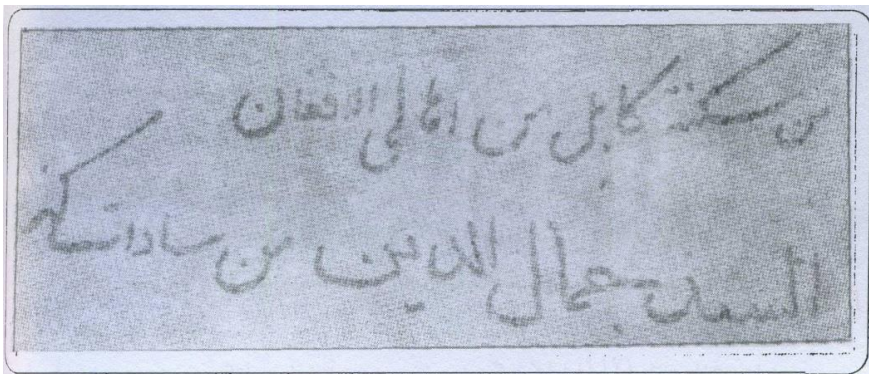 من سكنة كابل من اهالي الافغان
السيد جمال الدين من سادات كنر